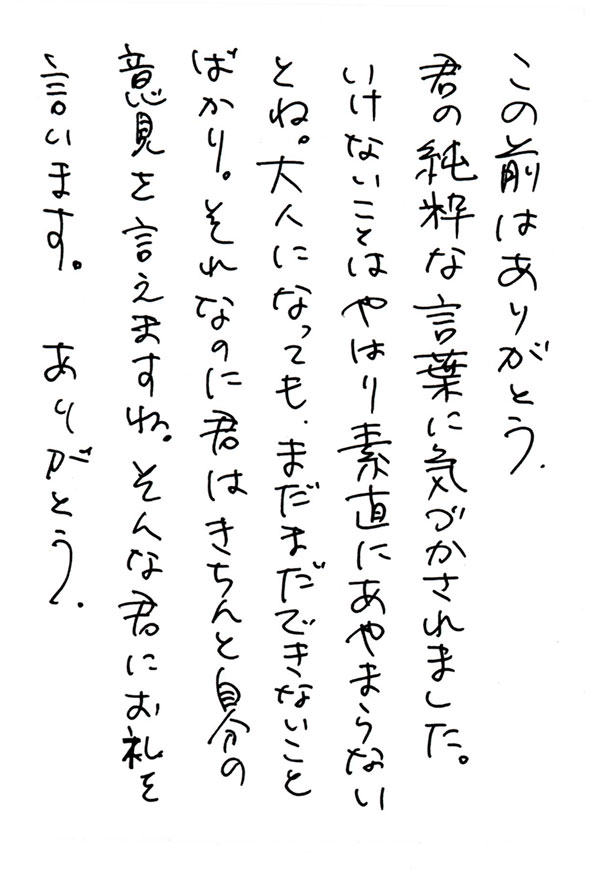 この前はありがとう.
君の純粋な言葉に気づかされました。
いけないことはやはり素直にあやまらない
とね。大人になっても、まだまだできないこと
ばかり。それなのに君はきちんと自分の
意見を言えますね。そんな君にお礼を
言います。 ありがとう.